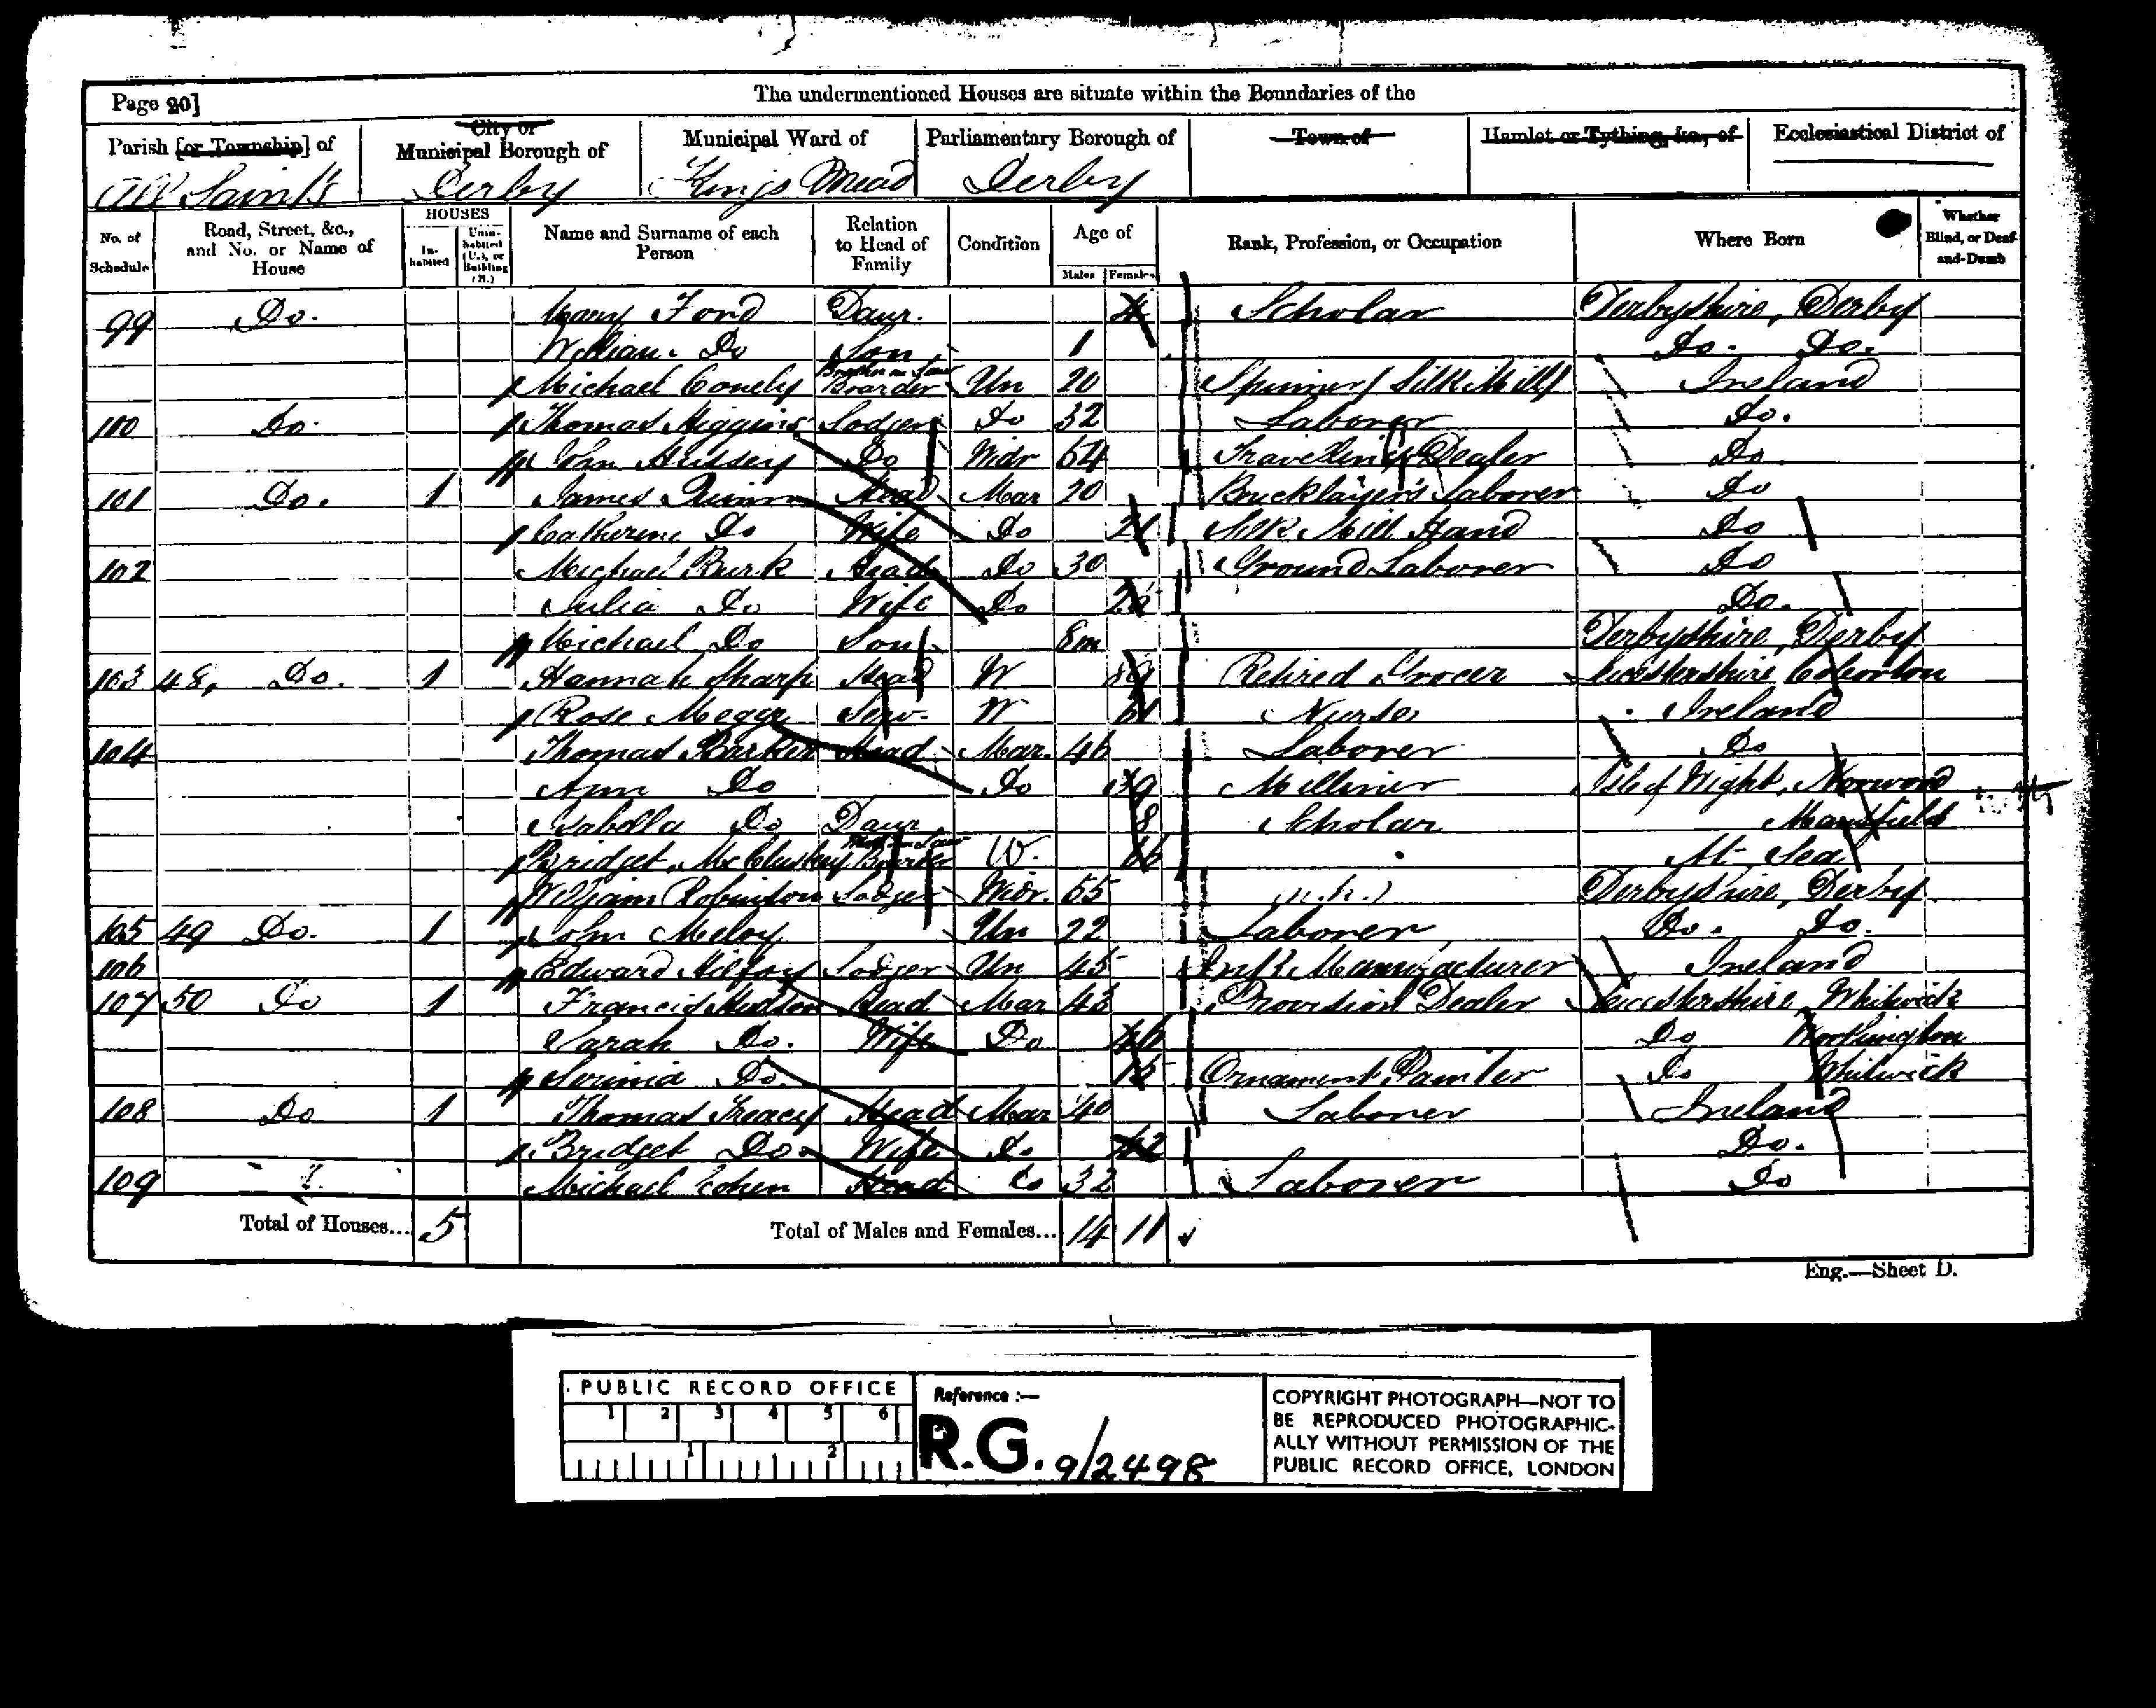 Page 20]
The undermentioned Houses are situate within the Boundaries of the
Parish [or Township] of
City or Municipal Borough of
Municipal Ward of
Parliamentary Borough of
Town of
Hamlet or Tything, &c., of
Ecclesiastical District of
All Saints Derby Kings Mead Derby
No. of Schedule
Road, Street, &c., and No. or Name of House
HOUSES
In-habited
Unin-habited (U.), or Building (B.)
Name and Surname of each Person
Relation to Head of Family
Condition
Age of
Males Females
Rank, Profession, or Occupation
Where Born
Whether Blind, or Deaf-and-Dumb
99 Do. Mary Ford Daur. 4 Scholar Derbyshire, Derby
William Do Son 1 Do. Do.
Michael Conely Brother in Law Boarder Un 20 Spinner (Silk Mill) Ireland
100 Do. Thomas Higgins Lodger Do 32 Laborer Do.
Hussey Do Widr 64 Travelling Dealer Do
101 Do. 1 James Quinn Head Mar 20 Bricklayer's Laborer Do
Catherine Do Wife Do 21 Silk Mill Hand Do
102 Michael Burk Head Do 30 Ground Laborer Do
Julia Do Wife Do Do.
Michael Do Son 8m Derbyshire, Derby
103 48, Do. 1 Hannah Sharp Head W 89 Retired Grocer Leicestershire, Coleorton
Rose Serv. W 61 Nurse Ireland
104 Thomas Barker Head Mar. 46 Laborer Do
Ann Do Do 39 Milliner Isle of Wight, Norwood
Isabella Do Daur 8 Scholar Mansfield
Bridget McCluskey Moth in Law Boarder W. 66 At Sea
William Robinson Lodger Widr. 55 (n.k.) Derbyshire, Derby
105 49 Do. 1 John Meloy Un 22 Laborer Do. Do.
106 Edward Lodger Un 45 Ink Manufacturer Ireland
107 50 Do 1 Francis Hudson Head Mar 43 Provision Dealer Leicestershire, Whitwick
Sarah Do. Wife Do 46 Do Worthington
Do. 15 Ornament Painter Do Whitwick
108 Do 1 Thomas Treacy Head Mar 40 Laborer Ireland
Bridget Do. Wife Do 42 Do.
109 Michael Cohen Head Do 32 Laborer Do
Total of Houses... 5 Total of Males and Females... 14 11
Eng.—Sheet D.
PUBLIC RECORD OFFICE
1 2 3 4 5 6
1 2
Reference :—
R.G. 9/2498
COPYRIGHT PHOTOGRAPH—NOT TO
BE REPRODUCED PHOTOGRAPHIC-
ALLY WITHOUT PERMISSION OF THE
PUBLIC RECORD OFFICE, LONDON